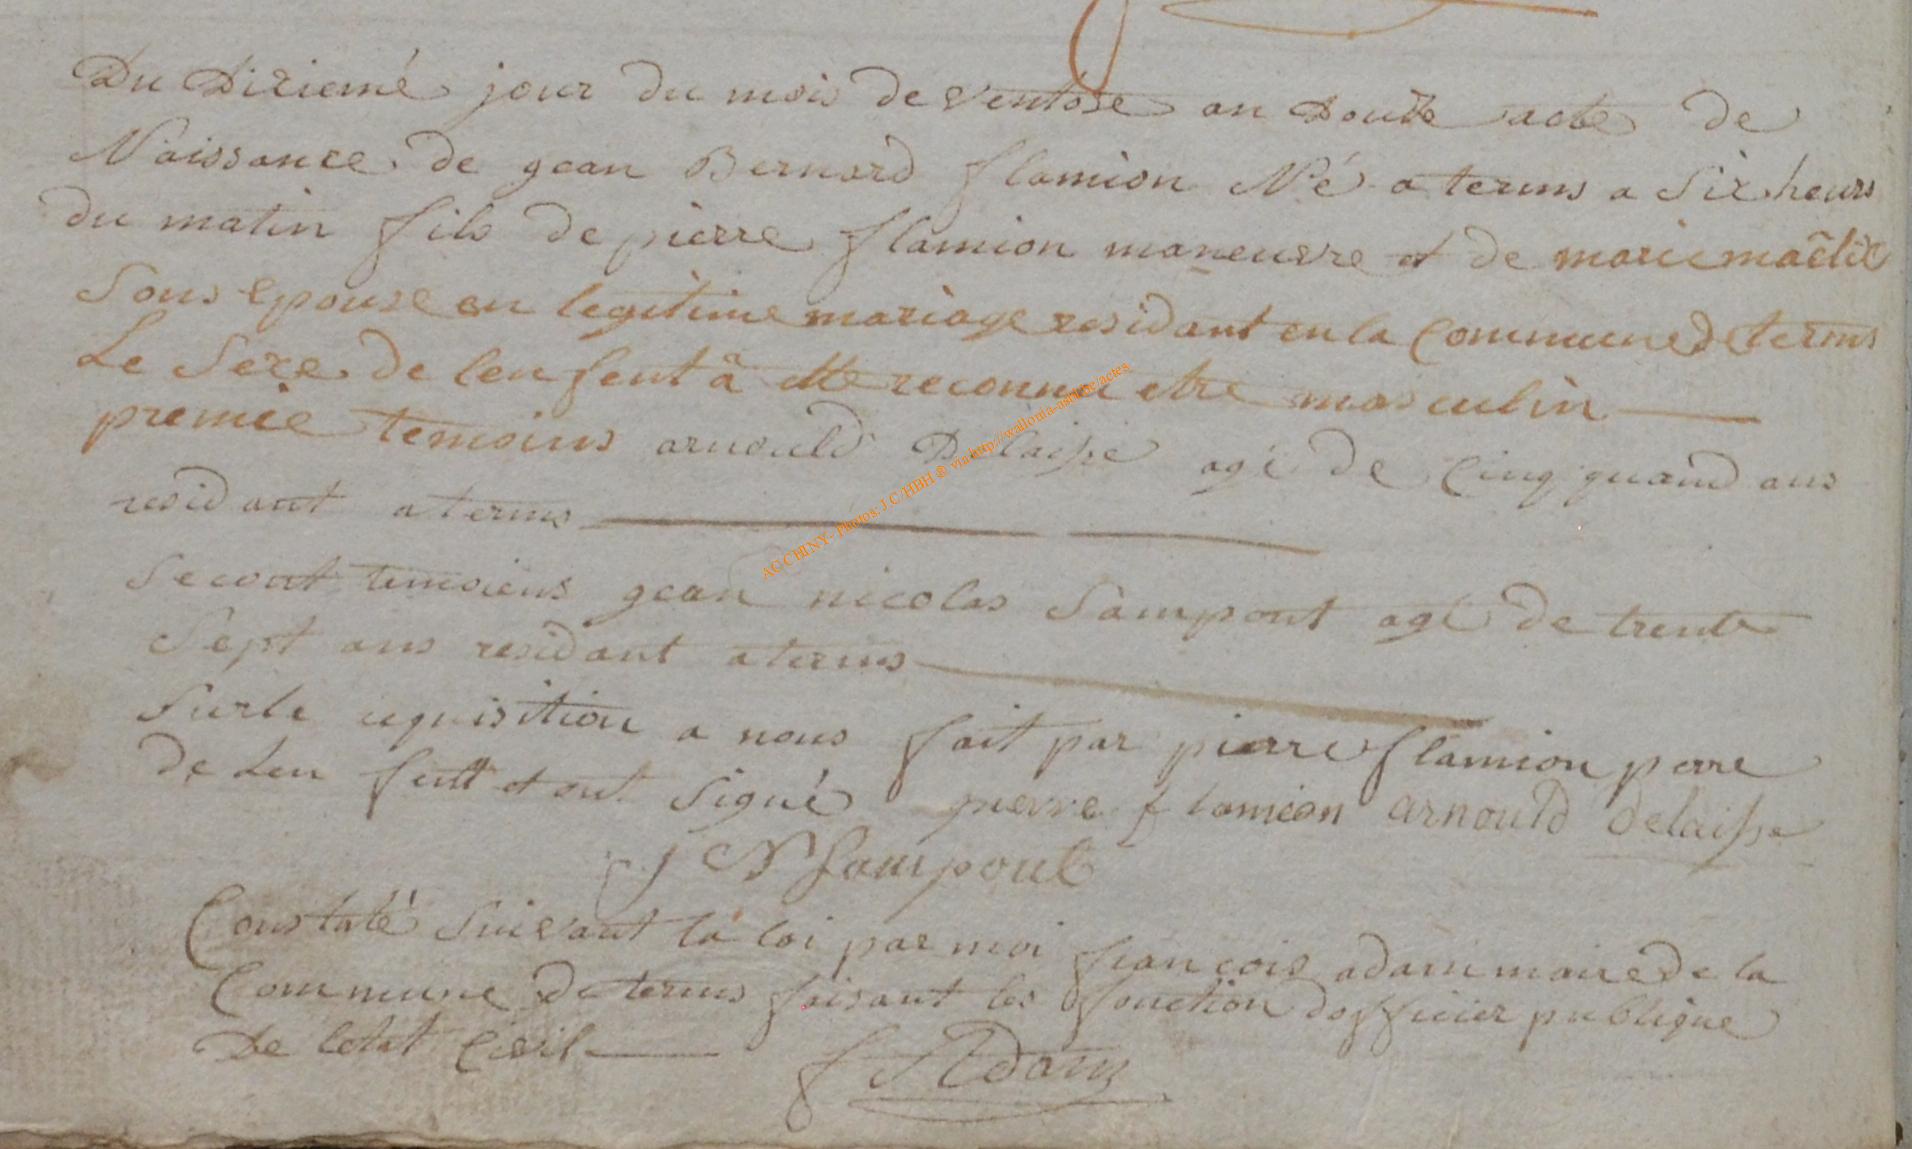 Du Dixiemé jour du mois de ventose an Douze acte de
Naissance de gean Bernard flamion Né a terms a Six heurs
du matin fils de pierre flamion maneuvre et de marie maêlit
Sons epouse en legitime mariage residant en la Commune de terms
Le Sexe de len fent à été reconnu etre masculin
premie temoins arnould Delaisse agé de Cinq quand ans
residant a terms
Secont temoiens gean nicolas Sampont agé de trente
Sept ans residant a terms
Surle requisition a nous fait par pierre flamion perre
de Len fent et ont Signé pierre flamion arnould delaisse
J N Sampont
Constaté Suivant la loi par moi françois adam maire de la
Commune de terms faisant les fonction dofficier publique
De letat Civil F Adam
AGCCHINY- Photos: J.C/HBH ® via http://wallonia-asbl.be/actes